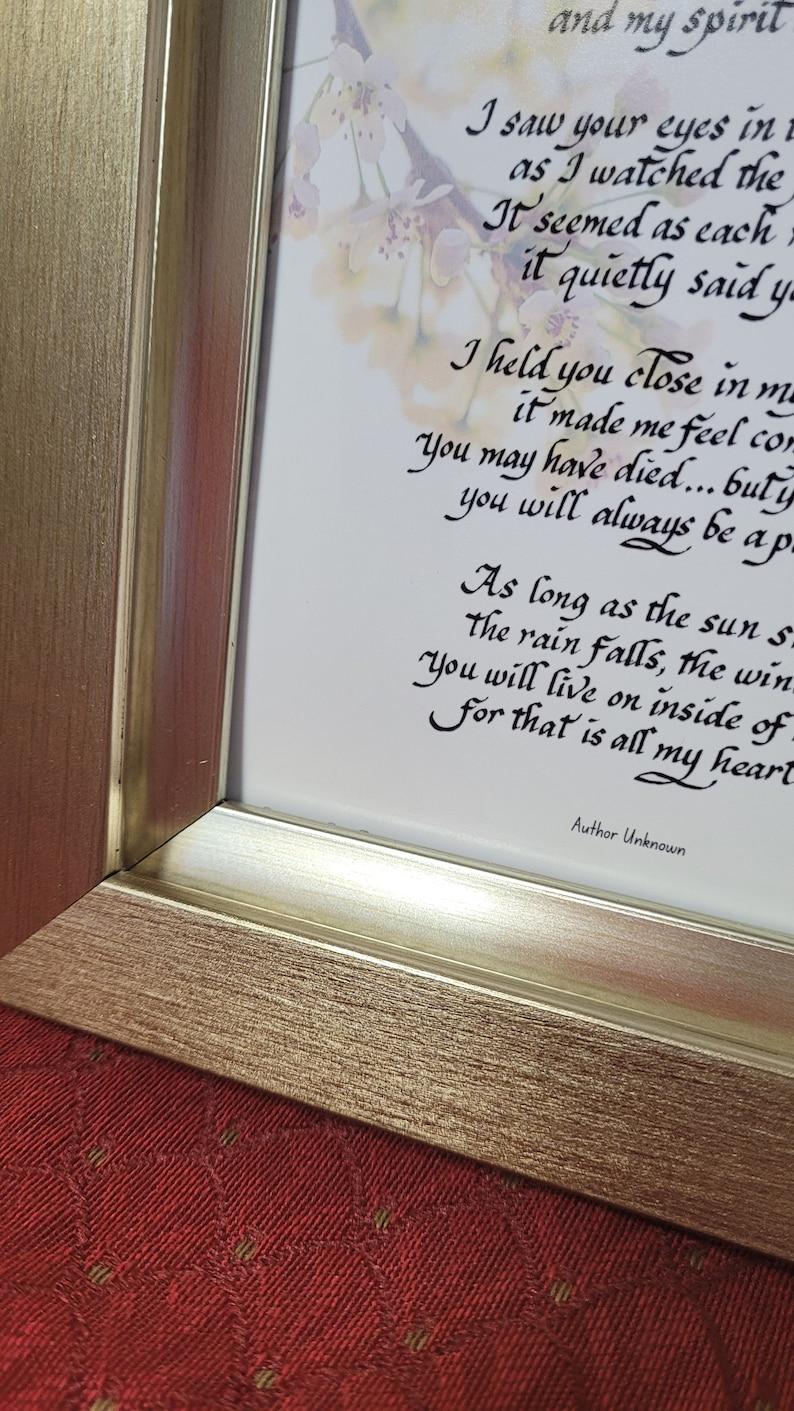 and my spirit
I saw your eyes in
as I watched the
It seemed as each
it quietly said
I held you close in
it made me feel
You may have died... but
you will always be a
As long as the sun
the rain falls, the
You will live on inside of
for that is all my heart
Author Unknown